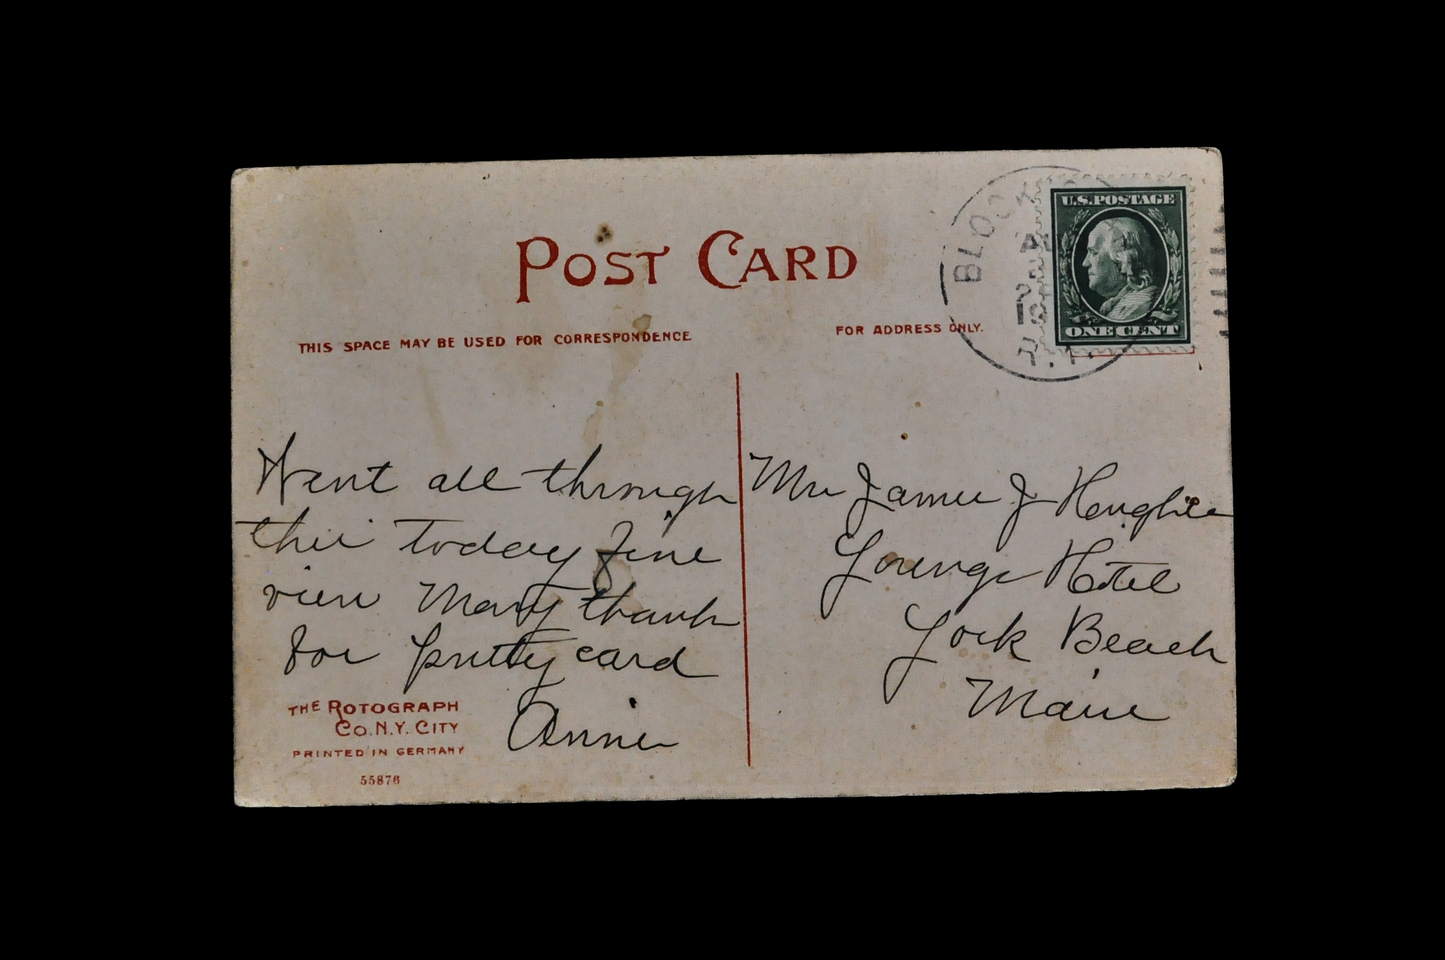 POST CARD
THIS SPACE MAY BE USED FOR CORRESPONDENCE
FOR ADDRESS ONLY.
BLOCK
R.I.
U.S. POSTAGE
ONE CENT
Went all through
this today fine
view Mary thank
for pretty card
Annie
Mr James J
Hotel
York Beach
Maine
THE ROTOGRAPH
CO. N.Y. CITY
PRINTED IN GERMANY
55876